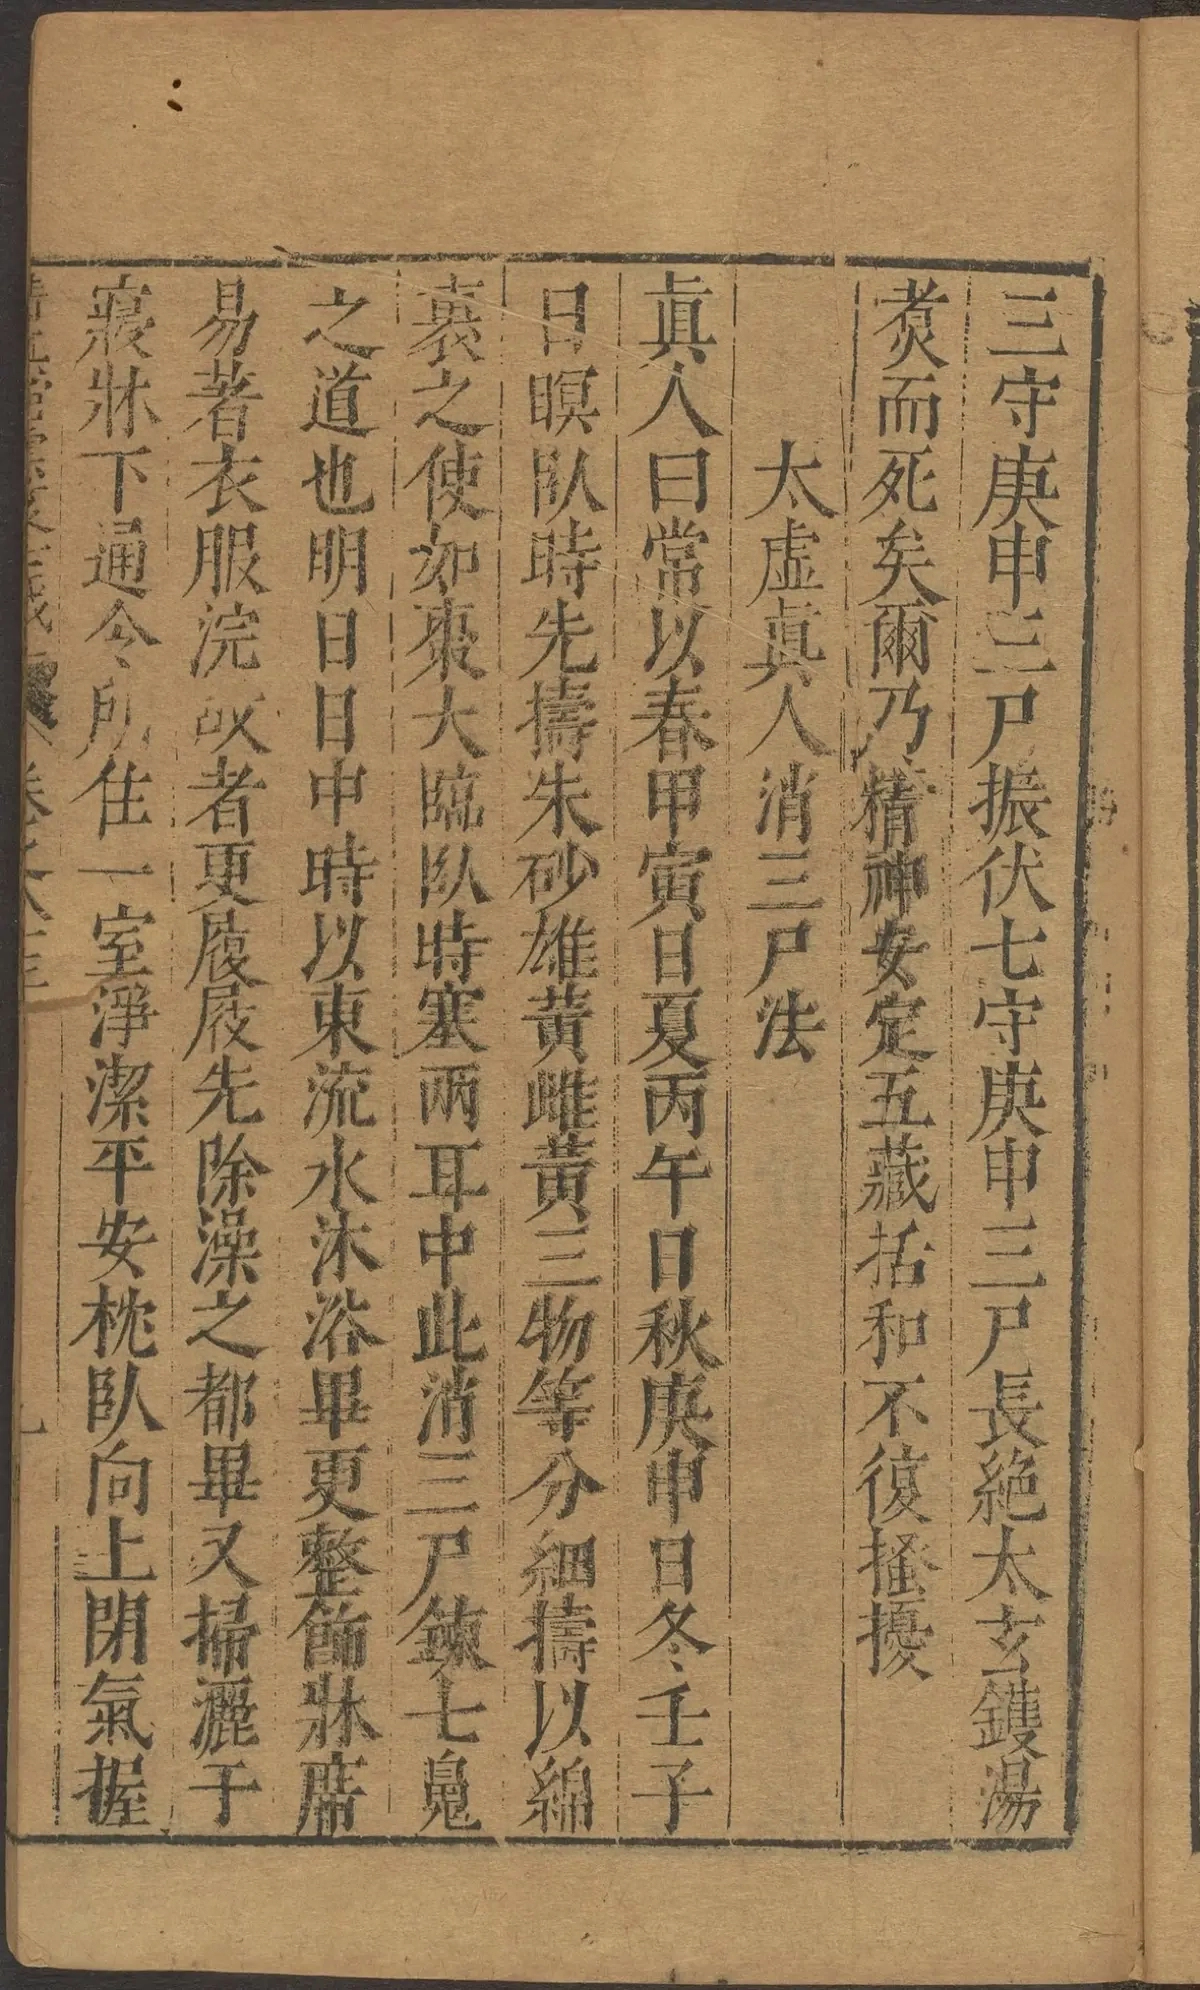 三守庚申三尸振伏七守庚申三尸長絕太玄鑊湯
煑而死矣爾乃精神安定五藏括和不復搔擾
太虛眞人消三尸法
眞人曰常以春甲寅日夏丙午日秋庚申日冬壬子
日瞑臥時先擣朱砂雄黃雌黃三物等分細擣以綿
裹之使如棗大臨臥時塞兩耳中此消三尸鍊七鬼
之道也明日日中時以東流水沐浴畢更整飾牀席
易著衣服浣故者更履屐先除澡之都畢又掃灑于
寢牀下通令所住一室淨潔平安枕臥向上閉氣握